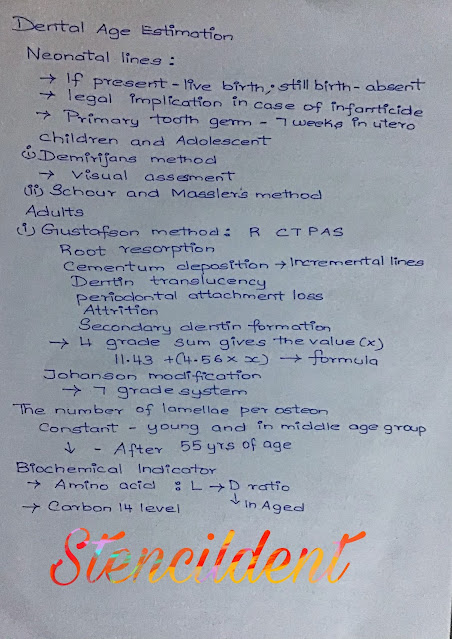 Dental Age Estimation
Neonatal lines :
→ If present - live birth, still birth - absent
→ legal implication in case of infanticide
→ Primary tooth germ - 7 weeks in utero
Children and Adolescent
(i) Demirijans method
→ Visual assesment
(ii) Schour and Massler's method
Adults
(i) Gustafson method : R CTPAS
Root resorption
Cementum deposition → Incremental lines
Dentin translucency
periodontal attachment loss
Attrition
Secondary dentin formation
→ 4 grade sum gives the value (x)
11.43 + (4.56 × x) → formula
Johanson modification
→ 7 grade system
The number of lamellae per osteon
Constant - young and in middle age group
↓ - After 55 yrs of age
Biochemical Indicator
→ Amino acid : L → D ratio
↓ in Aged
→ Carbon 14 level
Stencildent